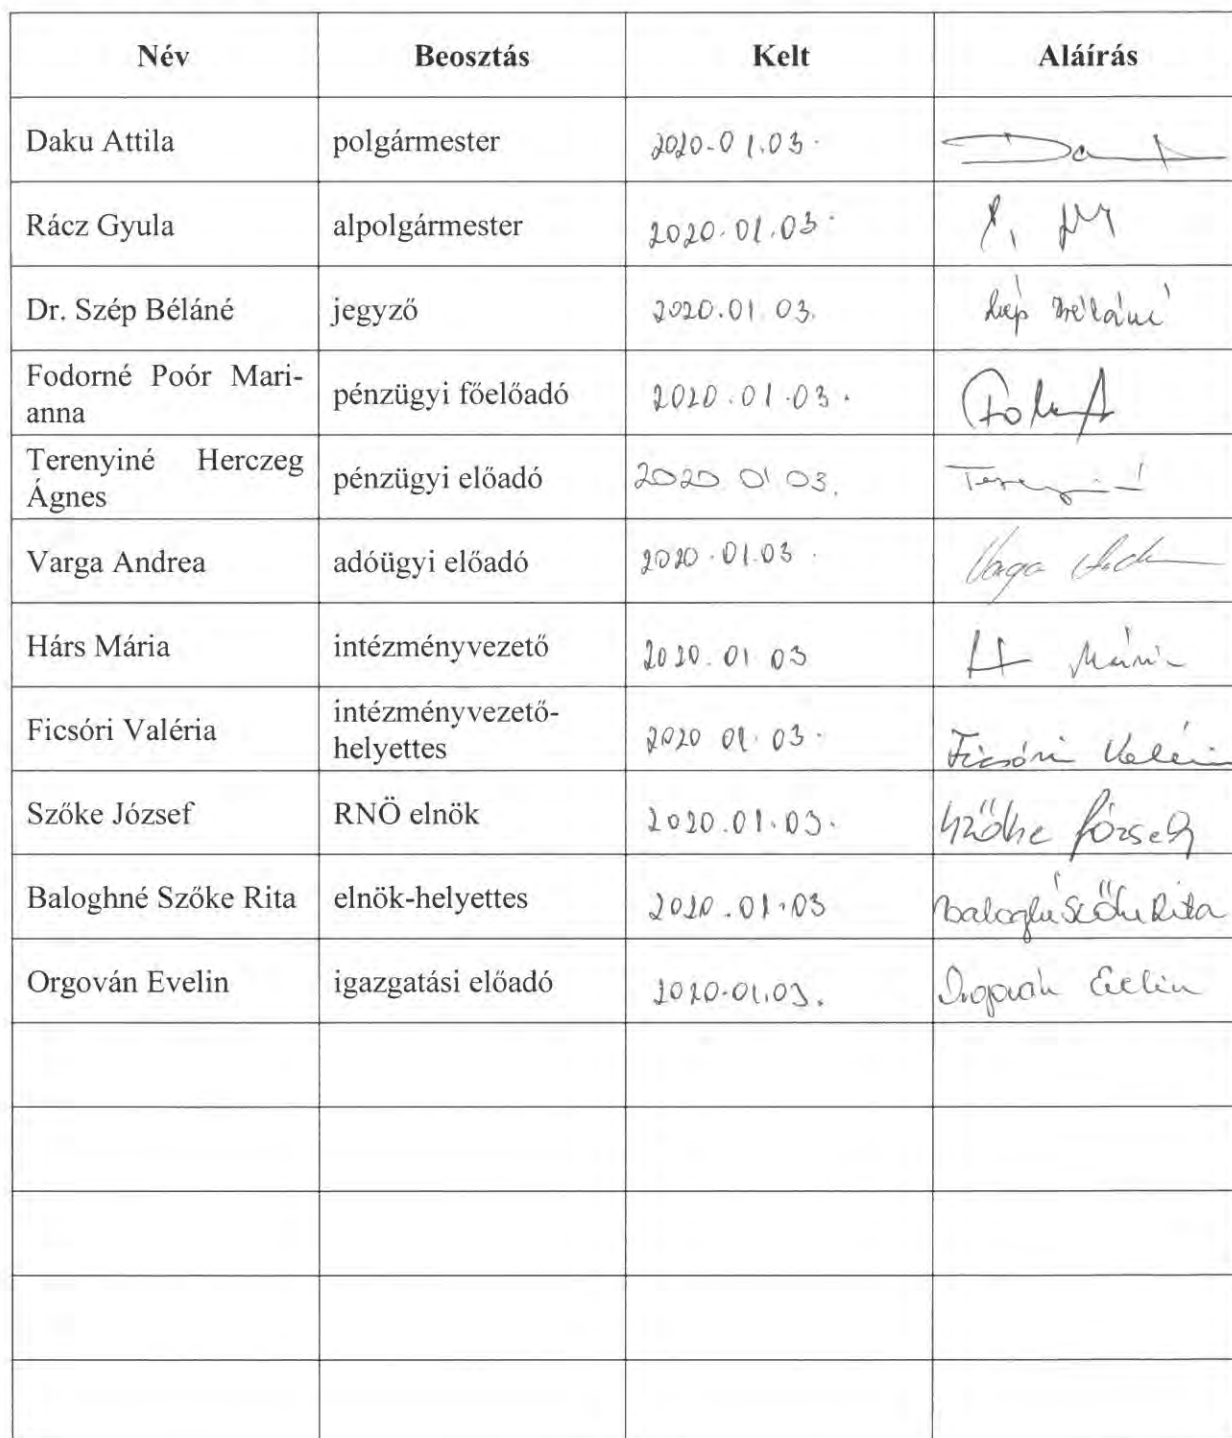 Név Beosztás Kelt Aláírás
Daku Attila polgármester 2020.01.03.
Rácz Gyula alpolgármester 2020.01.03.
Dr. Szép Béláné jegyző 2020.01.03. Szép Béláné
Fodorné Poór Mari-
anna pénzügyi főelőadó 2020.01.03.
Terenyiné Herczeg
Ágnes pénzügyi előadó 2020 01 03. Terenyiné
Varga Andrea adóügyi előadó 2020.01.03. Varga
Hárs Mária intézményvezető 2020.01 03 H Mária
Ficsóri Valéria intézményvezető-
helyettes 2020 01.03. Ficsóri Valéria
Szőke József RNÖ elnök 2020.01.03. Szőke József
Baloghné Szőke Rita elnök-helyettes 2020.01.03 Baloghné Szőke Rita
Orgován Evelin igazgatási előadó 2020.01.03. Orgován Evelin